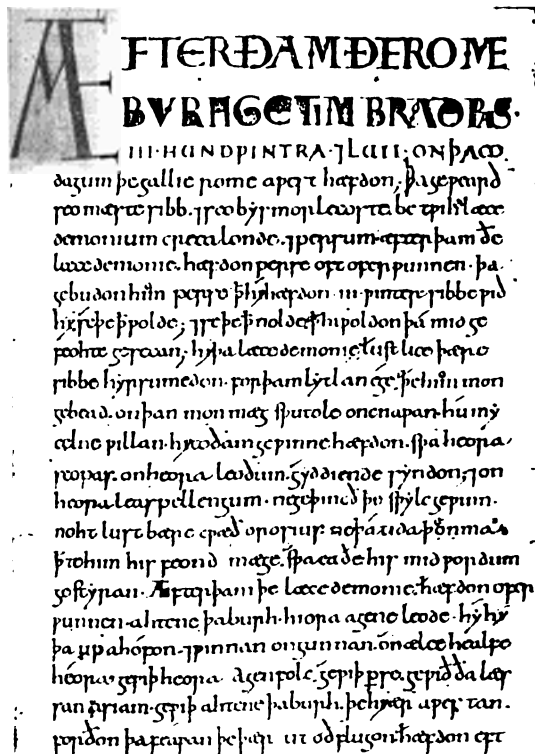 ÆFTER ÐAM ÐE ROME
BURH GETIMBRAD WÆS·
III·HUND ǷINTRA·⁊LUII; ON ÞÆM
dagum þe gallie rome aƿest hæfdon; þa geƿearð
seo mæste sibb·⁊seo bysmorlecoste be tƿih læce
demonium creca londe·⁊persum·æfter þam ðe
læcedemonie·hæfdon perse oft oferƿunnen·þa
gebudon him perse ꝥ hy hæfdon·iii·ƿinter sibbe ƿið
hy se þe ꝥ ƿolde; ⁊se þe ꝥ nolde ꝥ hi ƿoldon þá mid ge
feohte gesecan; hy þa læcedemonie lustlice þære
sibbe hyrsumedon·for þam lytlan ége þe him mon
gebead·on þan mon mæg sƿutole oncnaƿan hu my
celne ƿillan hy to ðam geƿinne hæfdon·sƿa heora
scopas·on heora leoðum gyddiende syndon, ⁊on
heora leasspellengum·ne geþincð þe sƿylc geƿinn·
noht lustbære cƿæð orosius ne þá tida þon ma·
þte him his feond mæge sƿa eaðe his mid ƿordum
gestyran· Æfter þam þe læcedemonie hæfdon ofer
ƿunnen ahtene þa burh·hiora agene leode·hy hy
þa up ahófon·⁊ƿinnan ongunnan·on ælce healfe
heora·ge ƿiþ heora agen folc·ge ƿiþ perse·ge ƿið ða læs
san asiam·ge ƿiþ ahtene þa burh·þe hy ær aƿes tan·
forðon þa feaƿan þe þær ut oðflugon hæfdon eft